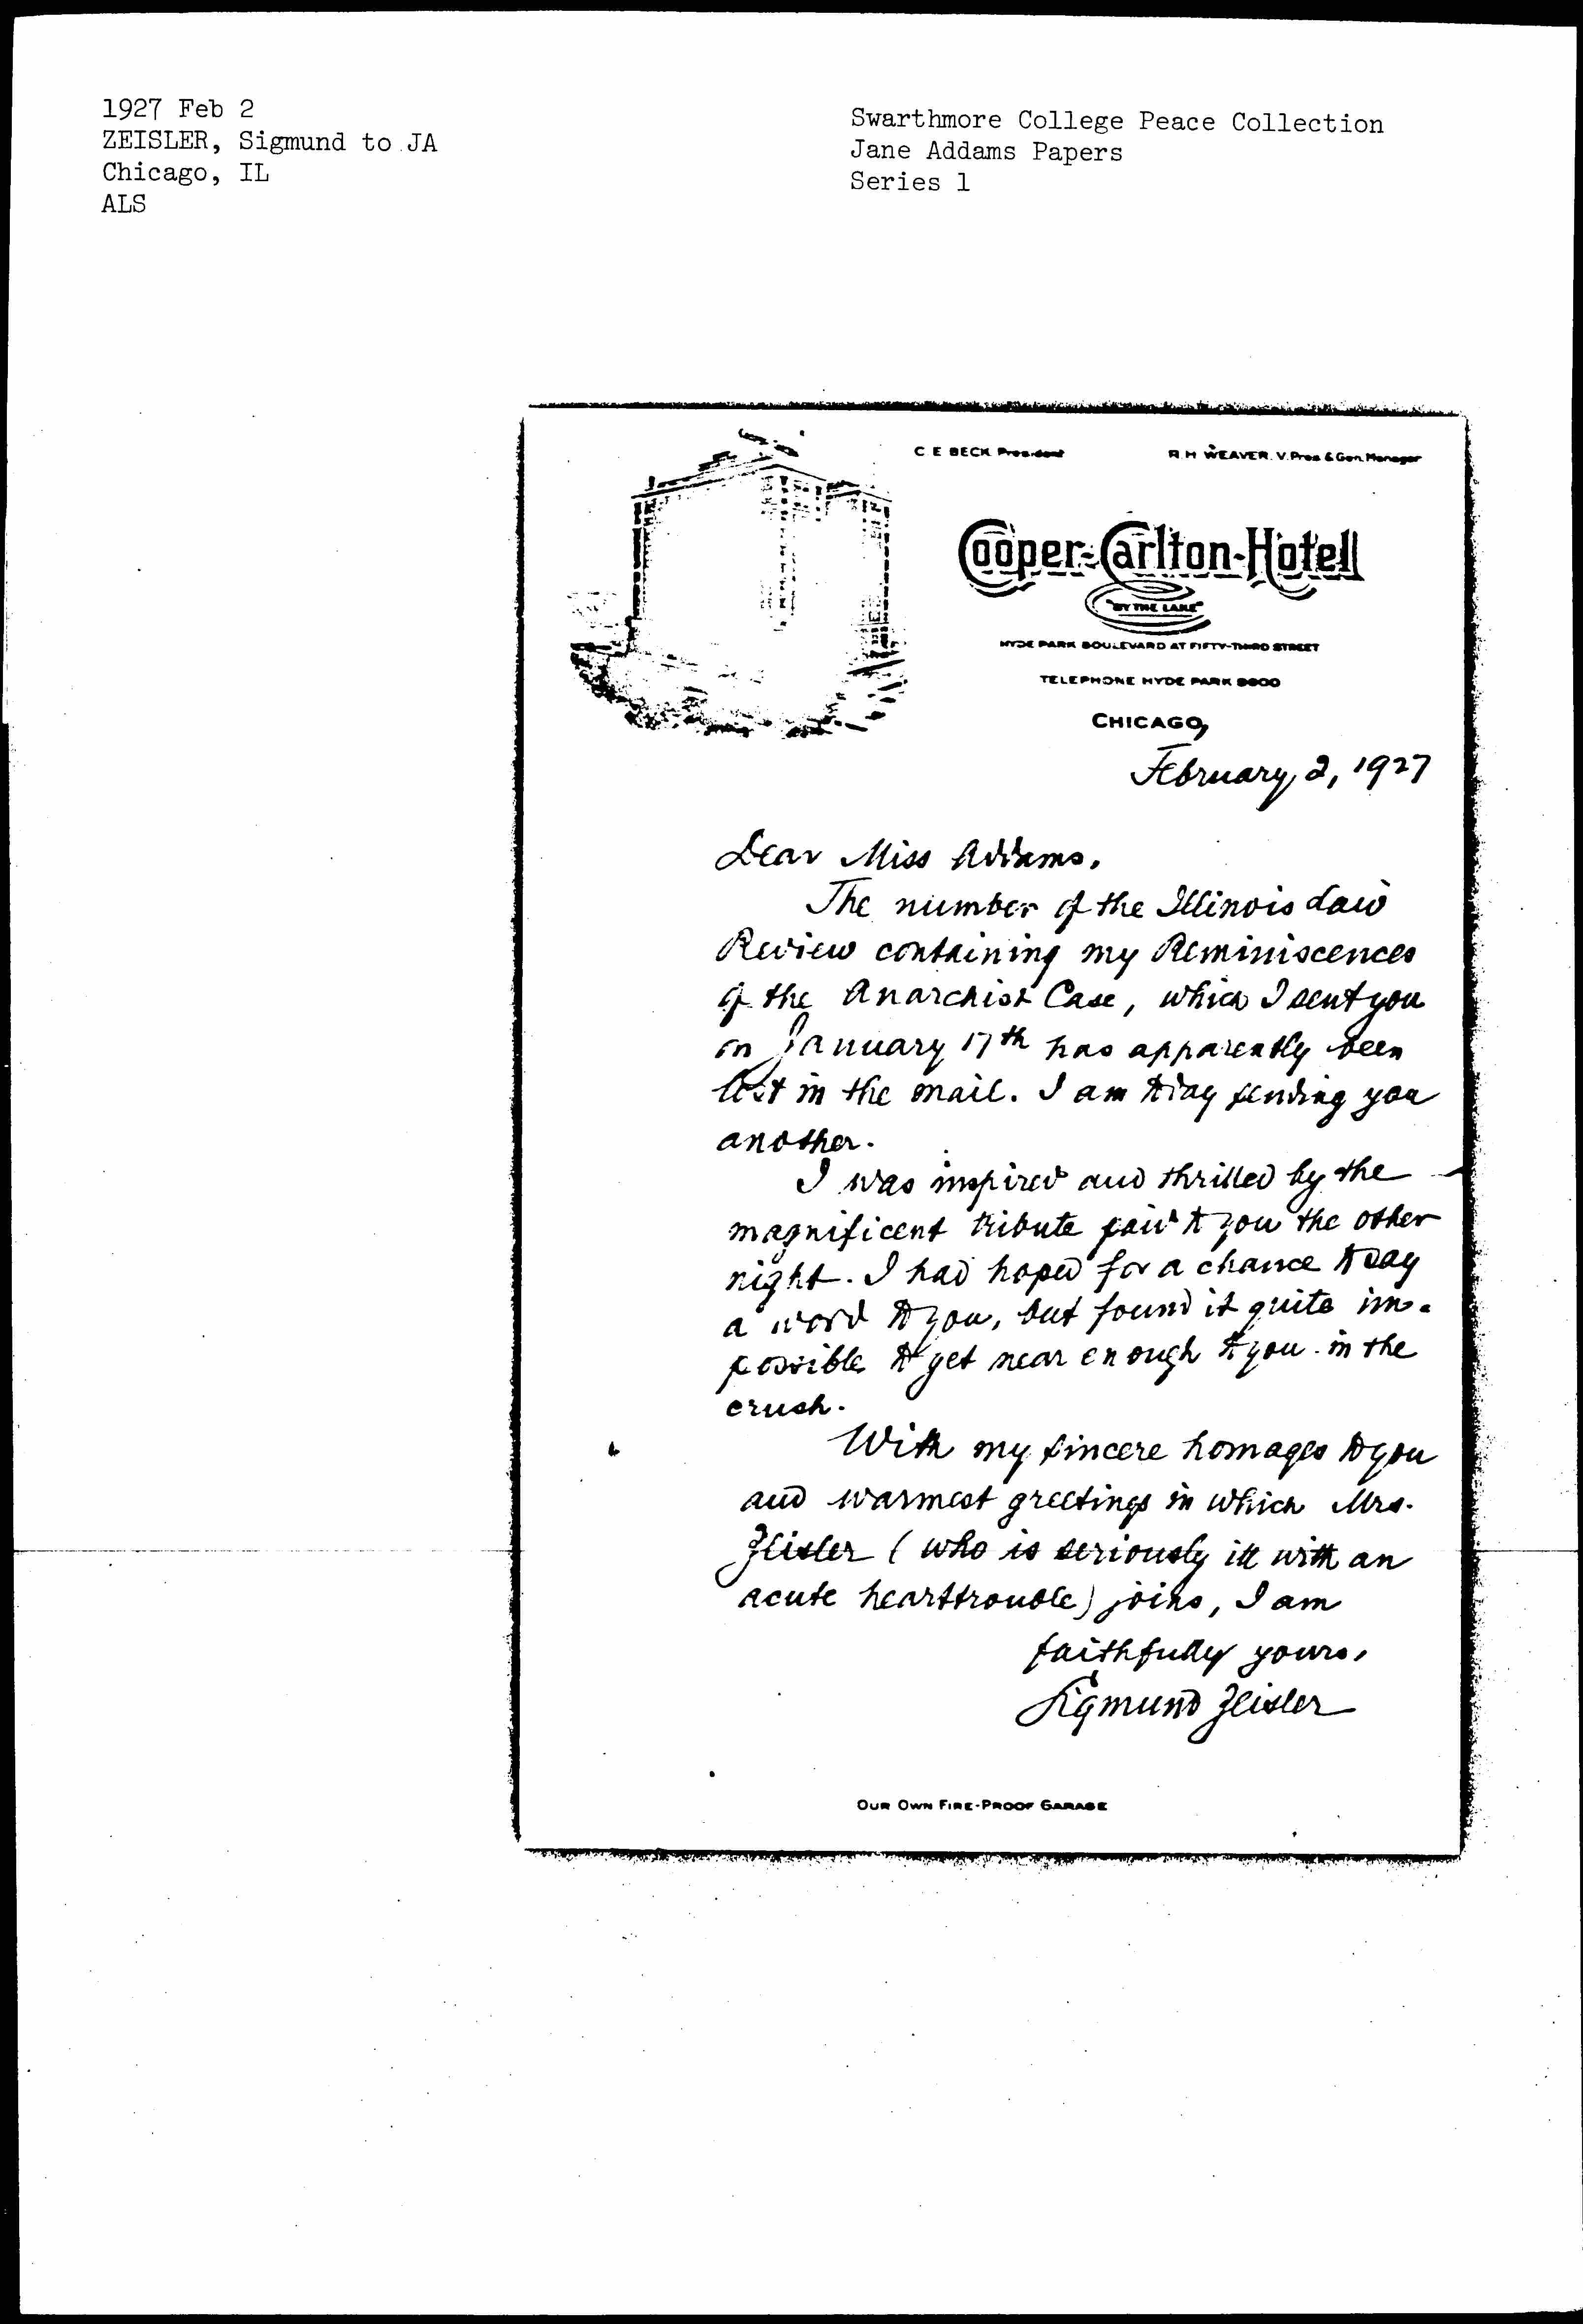 1927 Feb 2
ZEISLER, Sigmund to JA
Chicago, IL
ALS
Swarthmore College Peace Collection
Jane Addams Papers
Series 1
C E BECK President
R. H. WEAVER. V. Pres. & Gen. Manager
Cooper-Carlton-Hotel
"BY THE LAKE"
HYDE PARK BOULEVARD AT FIFTY-THIRD STREET
TELEPHONE HYDE PARK
CHICAGO,
February 2, 1927
Dear Miss Addams,
The number of the Illinois Law
Review containing my Reminiscences
of the Anarchist Case, which I sent you
on January 17th has apparently been
lost in the mail. I am today sending you
another.
I was inspired and thrilled by the
magnificent tribute paid to you the other
night. I had hoped for a chance to say
a word to you, but found it quite im-
possible to get near enough to you in the
crush.
With my sincere homages to you
and warmest greetings in which Mrs.
Zeisler (who is seriously ill with an
acute hearttrouble) joins, I am
faithfully yours,
Sigmund Zeisler
OUR OWN FIRE-PROOF GARAGE